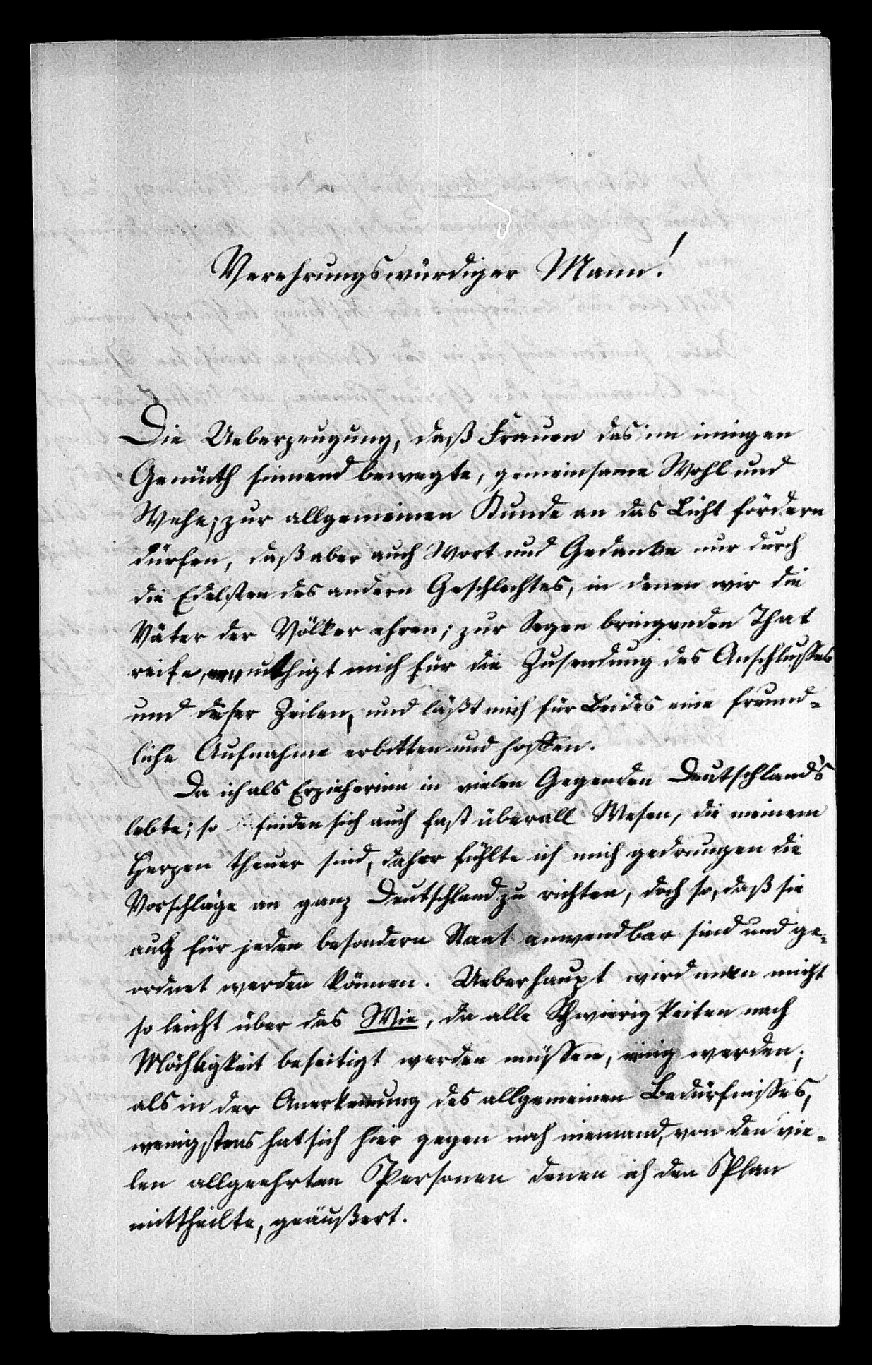 Verehrungswürdiger Mann!
Die Ueberzeugung, daß Frauen das im innigen
Gemüth sinnend bewegte, gemeinsame Wohl und
Wehe, zur allgemeinen Kunde an das Licht fördern
dürfen, daß aber auch Wort und Gedanke nur durch
die Edelsten des andern Geschlechtes, in denen wir die
Väter der Völker ehren; zur Segen bringenden That
reife, ermuthigt mich für die Zusendung des Anschlußes
und dieser Zeilen, und läßt mich für Beides eine freund-
liche Aufnahme erbitten und hoffen.
Da ich als Erzieherinn in vielen Gegenden Deutschland's
lebte; so finden sich auch fast überall Wesen, die meinem
Herzen theuer sind, daher fühlte ich mich gedrungen die
Vorschläge an ganz Deutschland zu richten, doch so, daß sie
auch für jeden besondern Staat anwendbar sind und ge-
ordnet werden können. Ueberhaupt wird man nicht
so leicht über das Wie, da alle Schwierigkeiten nach
Möchligkeit beseitigt werden müssen, einig werden;
als in der Anerkennung des allgemeinen Bedürfnißes,
wenigstens hat sich hier gegen noch niemand, von den vie-
len allgeehrten Personen denen ich den Plan
mittheilte, geäußert.